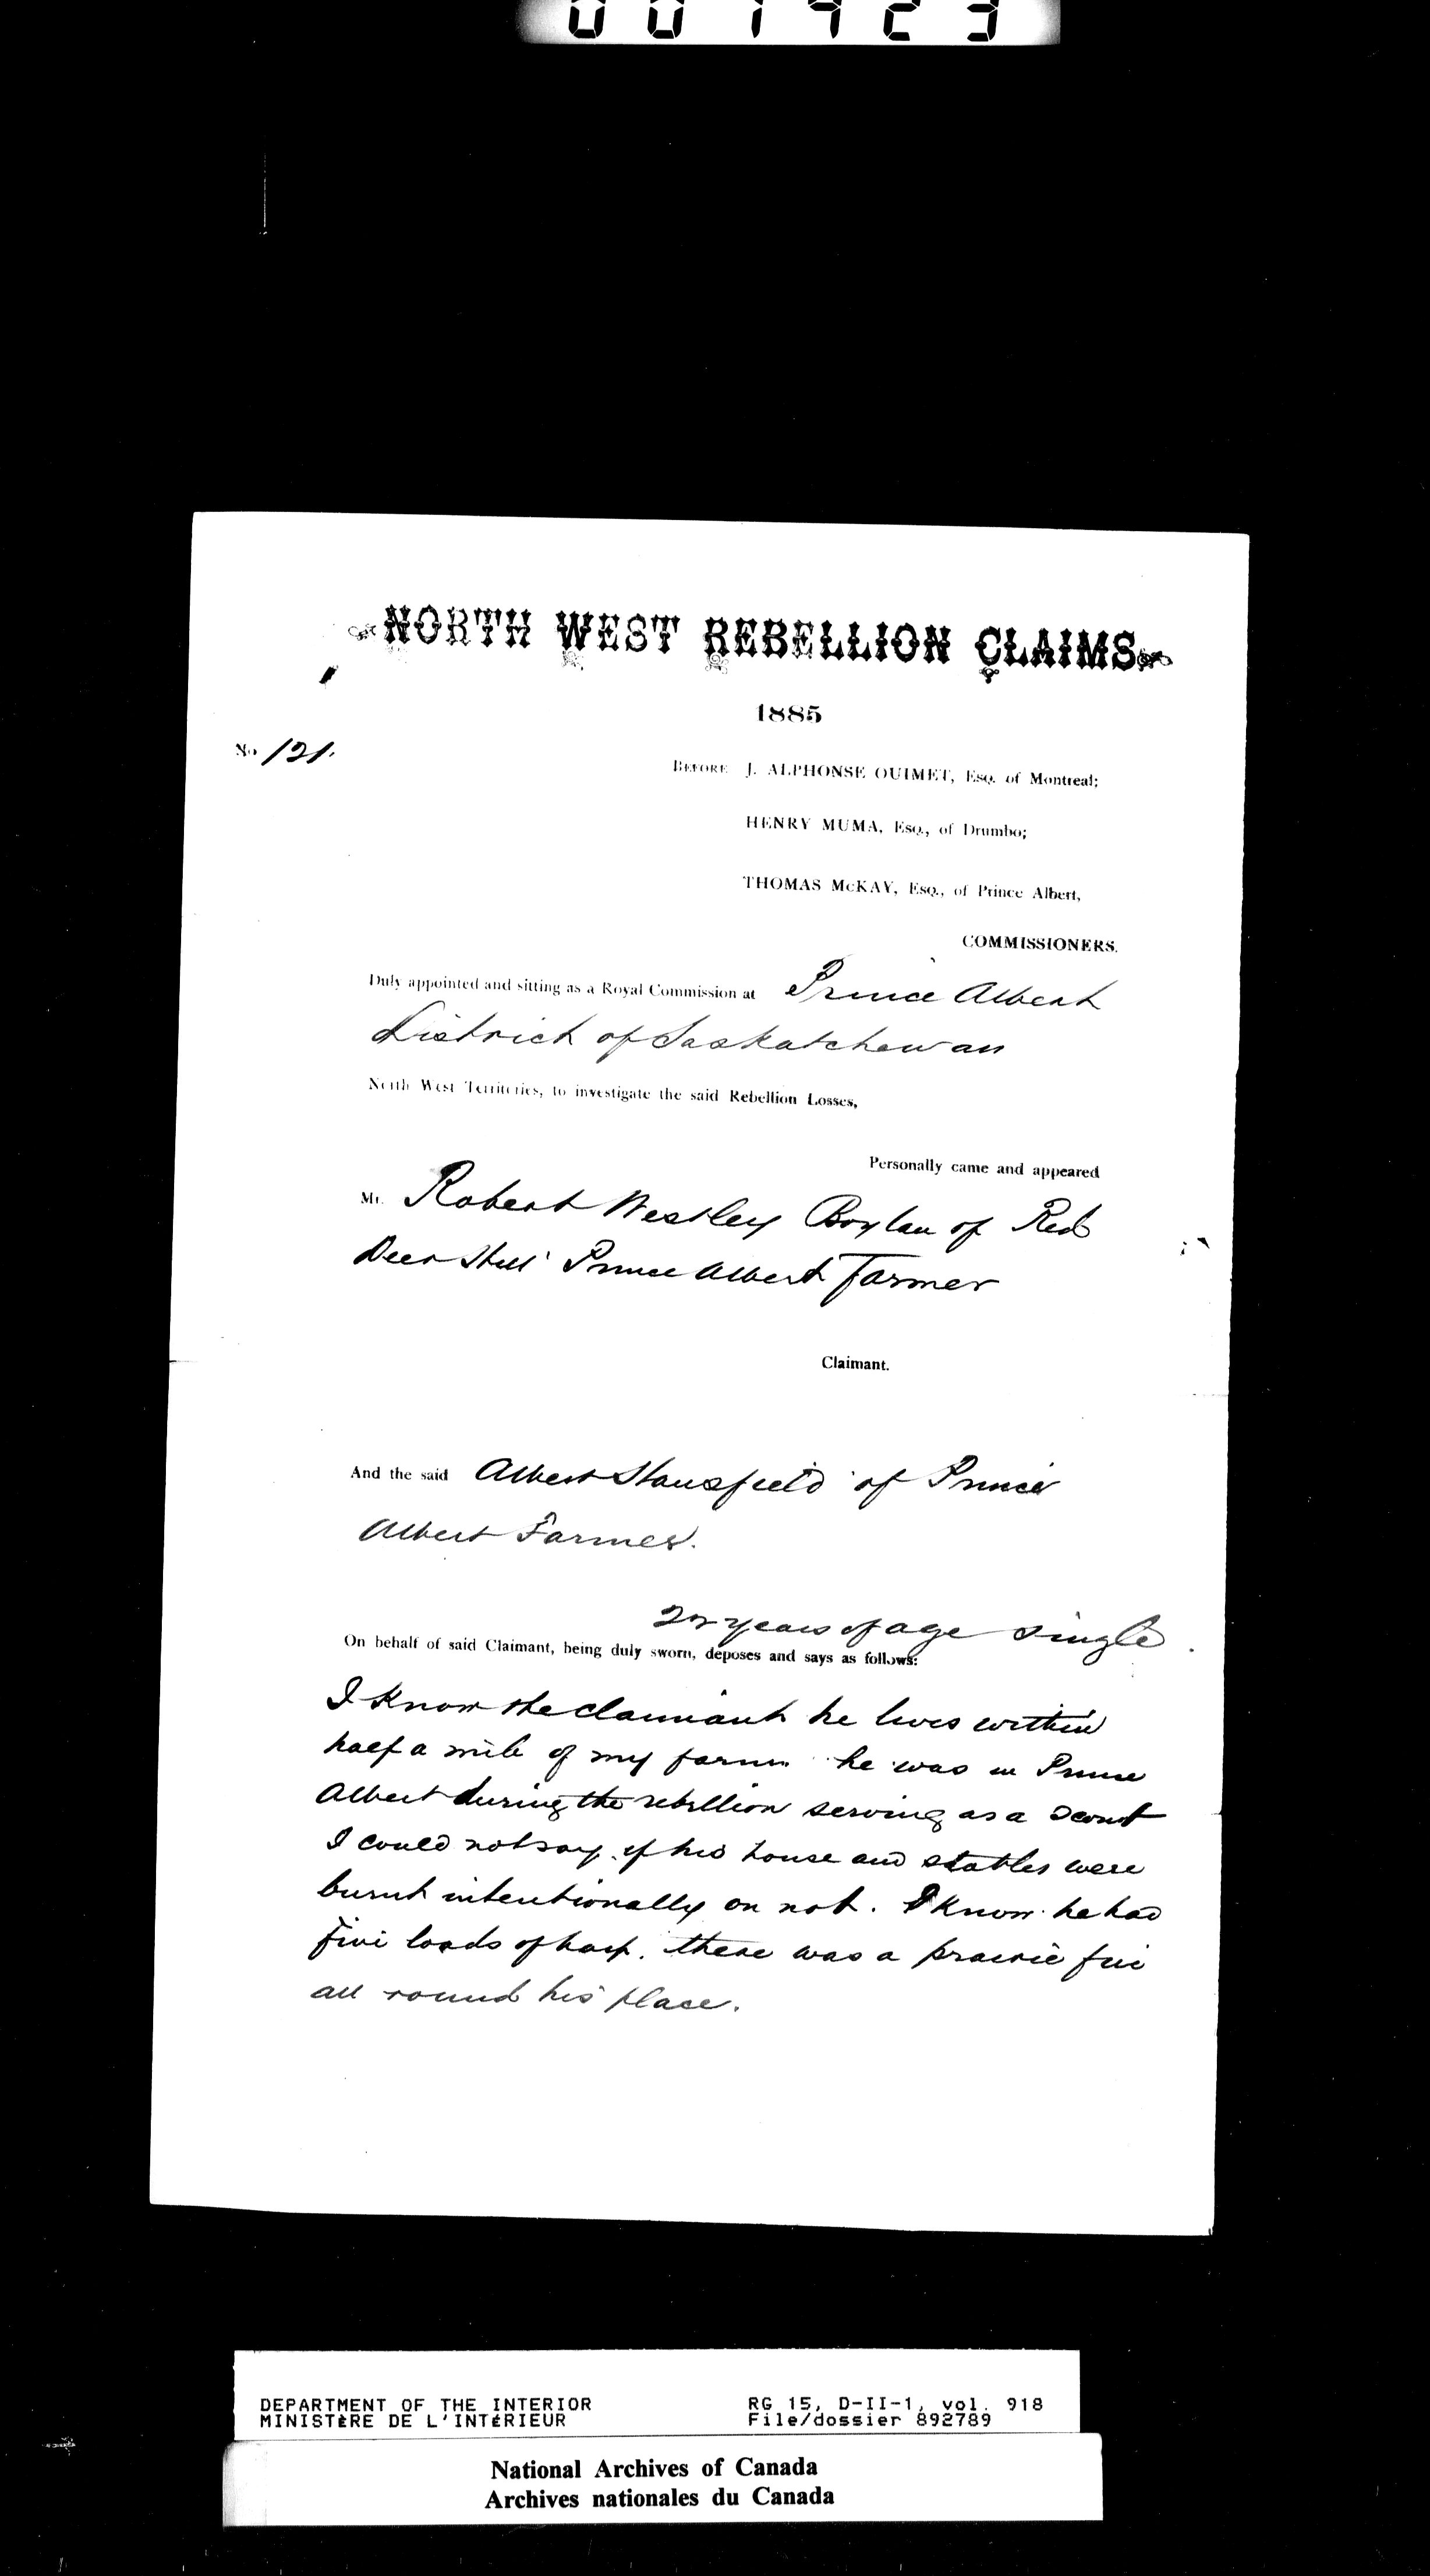 001423
NORTH WEST REBELLION CLAIMS
1885
No 121.
BEFORE J. ALPHONSE OUIMET, Esq. of Montreal;
HENRY MUMA, Esq., of Drumbo;
THOMAS McKAY, Esq., of Prince Albert,
COMMISSIONERS.
Duly appointed and sitting as a Royal Commission at Prince Albert
District of Saskatchewan
North West Territories, to investigate the said Rebellion Losses,
Personally came and appeared
Mr. Robert Westley Boylan of Red
Deer Hill Prince Albert Farmer
Claimant.
And the said Albert Stansfield of Prince
Albert Farmer.
22 years of age single.
On behalf of said Claimant, being duly sworn, deposes and says as follows:
I know the claimant he lives within
half a mile of my farm he was in Prince
Albert during the rebellion serving as a scout
I could not say if his house and stables were
burnt intentionally or not. I know he had
five loads of hay. there was a prairie fire
all round his place.
DEPARTMENT OF THE INTERIOR RG 15, D-II-1, vol. 918
MINISTÈRE DE L'INTÉRIEUR File/dossier 892789
National Archives of Canada
Archives nationales du Canada